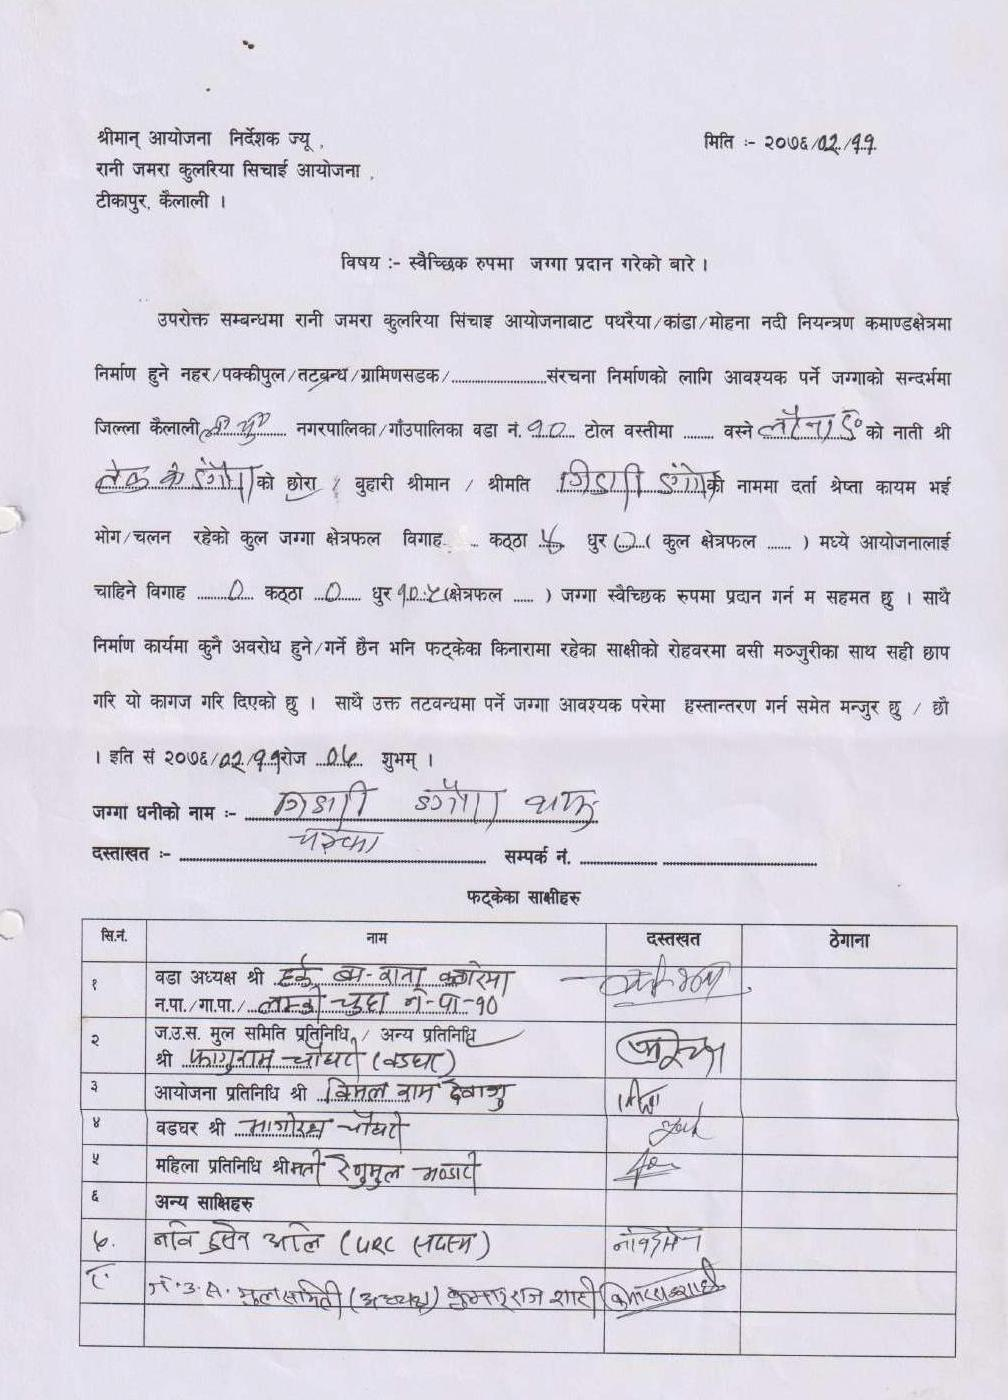 श्रीमान् आयोजना निर्देशक ज्यू ,
मिति :- २०७६/०२/११
रानी जमरा कुलरिया सिचाई आयोजना ,
टीकापुर, कैलाली ।
विषय :- स्वैच्छिक रुपमा जग्गा प्रदान गरेको बारे ।
उपरोक्त सम्बन्धमा रानी जमरा कुलरिया सिंचाइ आयोजनाबाट पथरैया/कांडा/मोहना नदी नियन्त्रण कमाण्डक्षेत्रमा
निर्माण हुने नहर/पक्कीपुल/तटबन्ध/ग्रामिणसडक/..........................संरचना निर्माणको लागि आवश्यक पर्ने जग्गाको सन्दर्भमा
जिल्ला कैलाली नगरपालिका/गाँउपालिका वडा नं. १० टोल वस्तीमा ........ वस्ने को नाती श्री
को छोरा / बुहारी श्रीमान / श्रीमति की नाममा दर्ता श्रेष्ता कायम भई
भोग/चलन रहेको कुल जग्गा क्षेत्रफल विगाह कठ्ठा ५ धुर ० ( कुल क्षेत्रफल ...... ) मध्ये आयोजनालाई
चाहिने विगाह ० कठ्ठा ० धुर १०.५ (क्षेत्रफल ...... ) जग्गा स्वैच्छिक रुपमा प्रदान गर्न म सहमत छु । साथै
निर्माण कार्यमा कुनै अवरोध हुने/गर्ने छैन भनि फट्केका किनारामा रहेका साक्षीको रोहवरमा वसी मञ्जुरीका साथ सही छाप
गरि यो कागज गरि दिएको छु । साथै उक्त तटवन्धमा पर्ने जग्गा आवश्यक परेमा हस्तान्तरण गर्न समेत मन्जुर छु / छौ
। इति सं २०७६/०२/११ रोज शुभम् ।
जग्गा धनीको नाम :-
दस्ताखत :- सम्पर्क नं.
फट्केका साक्षीहरु
सि.नं. नाम दस्तखत ठेगाना
१ वडा अध्यक्ष श्री
न.पा./गा.पा./ लम्की चुहा न.पा-१०
२ ज.उ.स. मुल समिति प्रतिनिधि / अन्य प्रतिनिधि
श्री फागुराम चौधरी (वडघर)
३ आयोजना प्रतिनिधि श्री विमल राम देवाजु
४ वडघर श्री चौधरी
५ महिला प्रतिनिधि श्रीमती
६ अन्य साक्षिहरु
७. नवि हुसेन अलि ( सदस्य)
८. ज.उ.स. मुलसमिती (अध्यक्ष) कुमारराज शाही